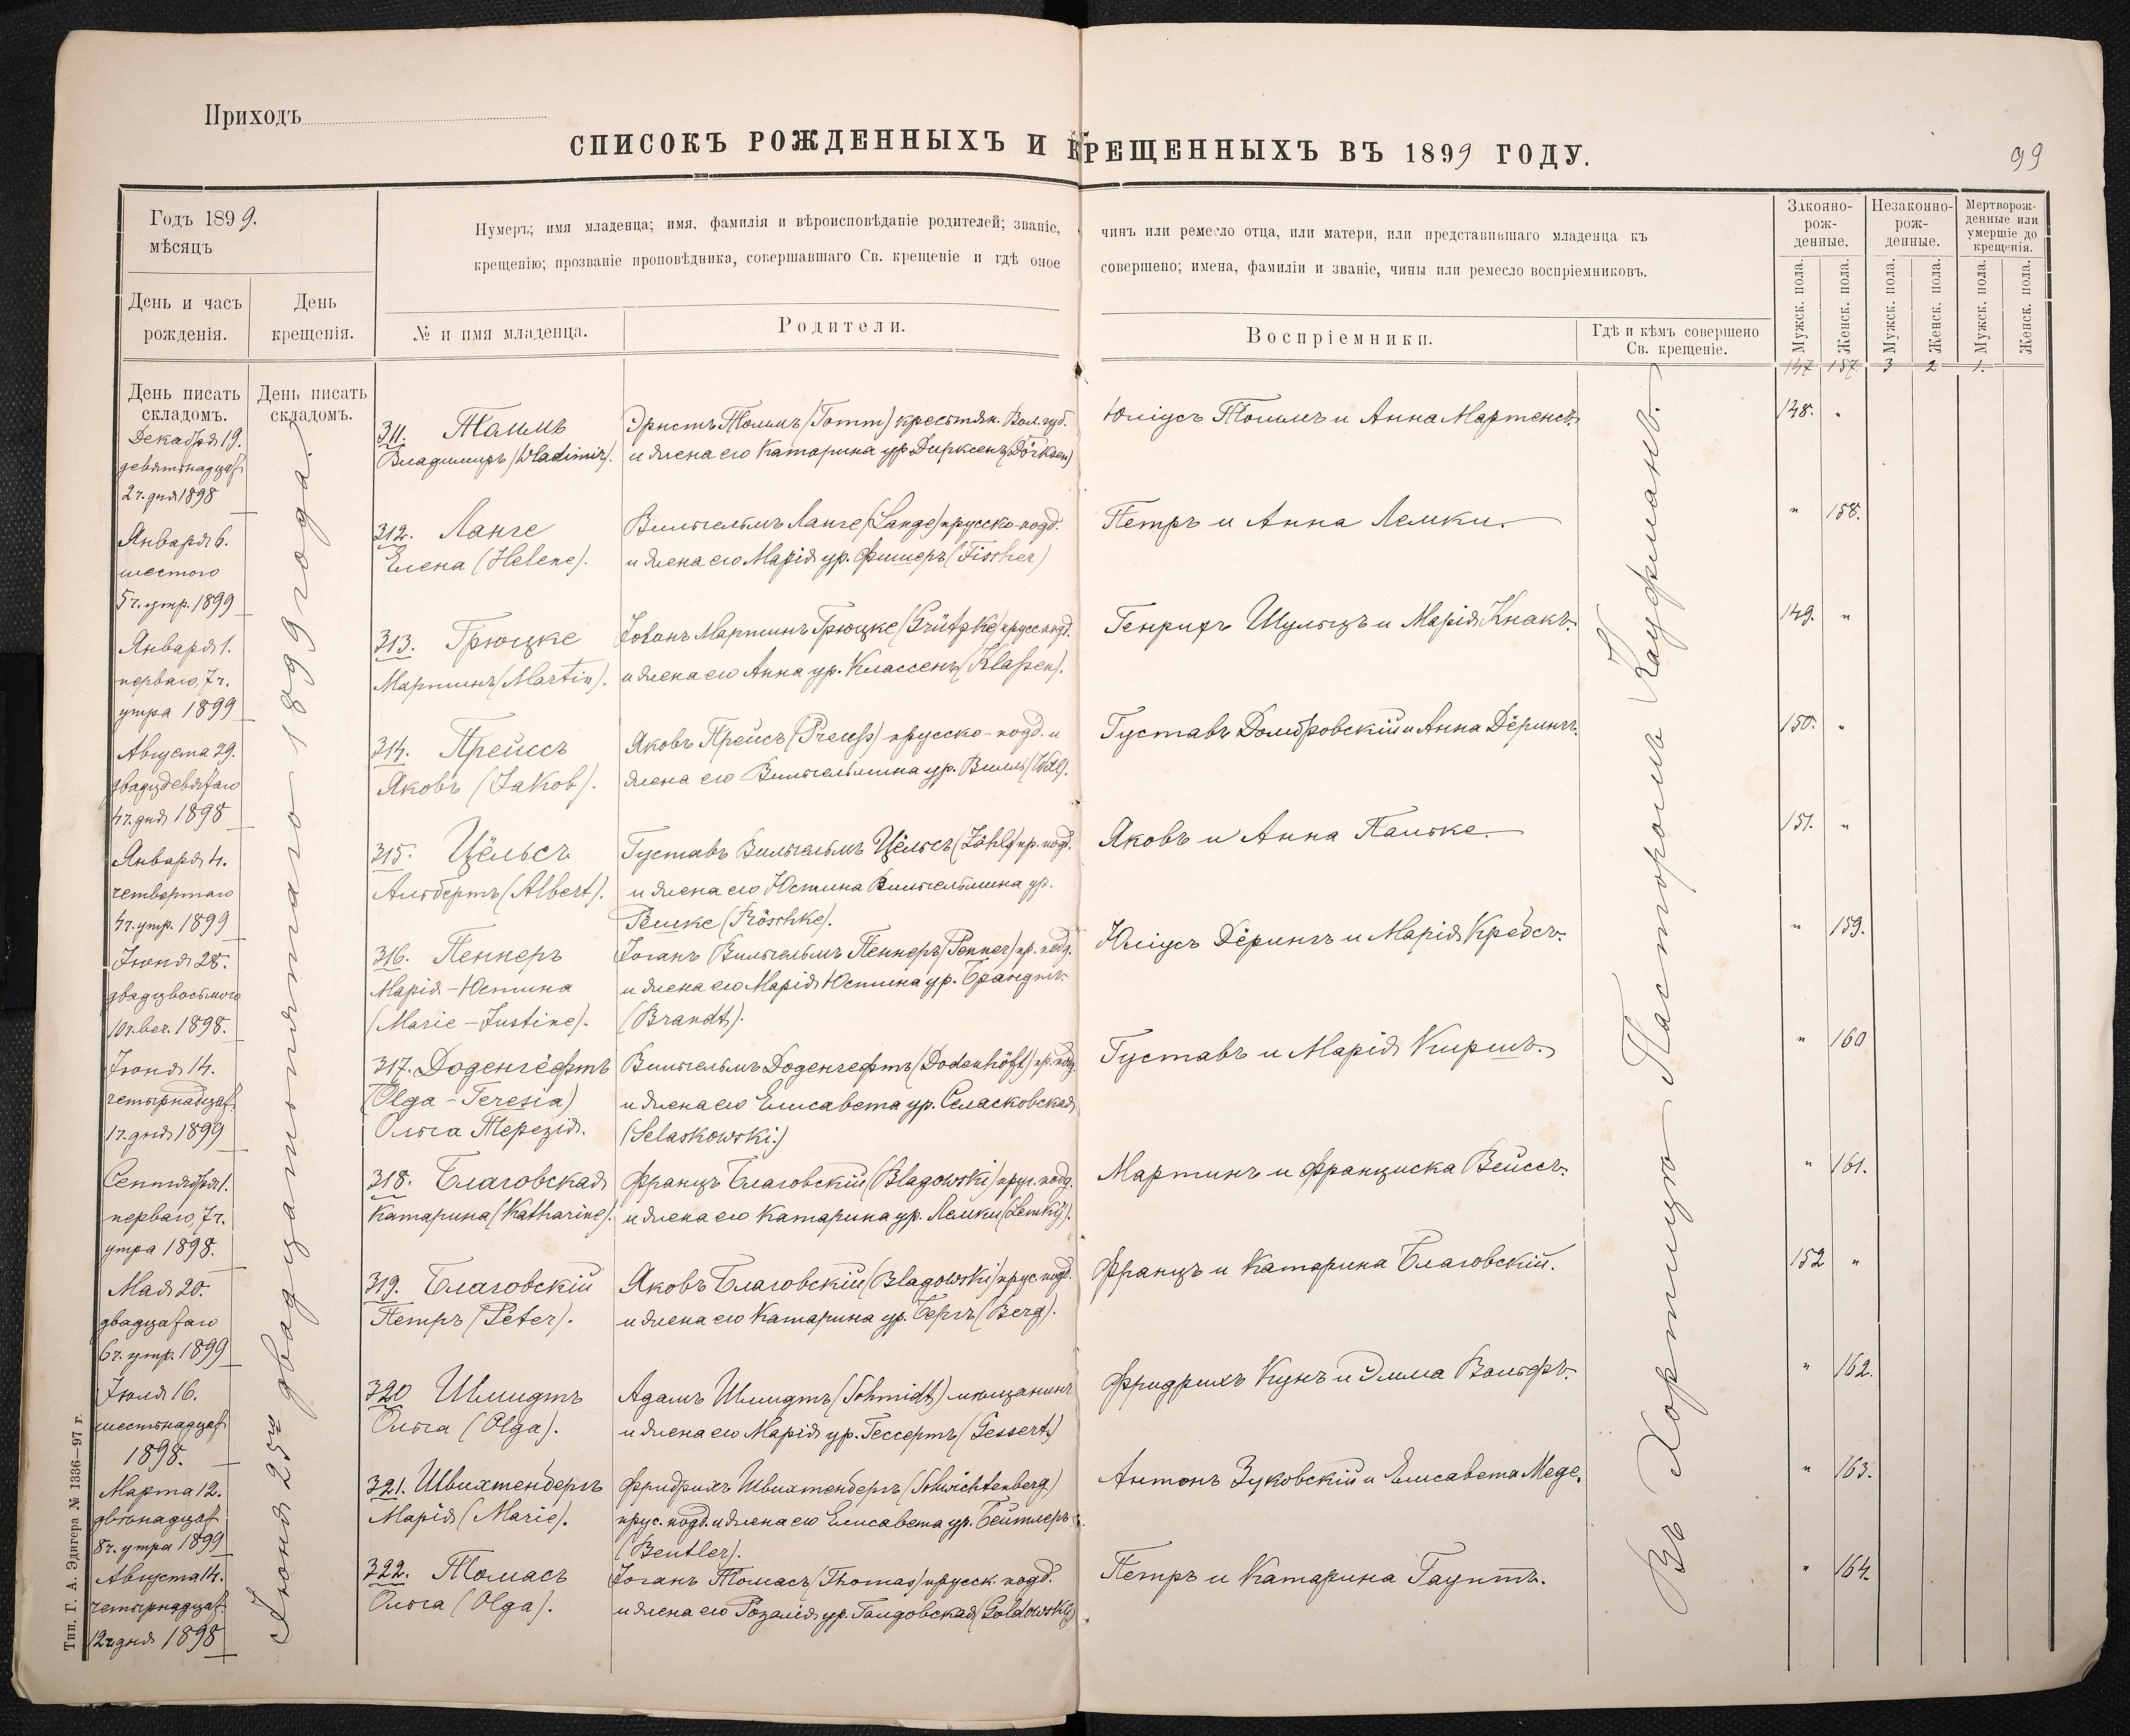 Приходъ
СПИСОКЪ РОЖДЕННЫХЪ И КРЕЩЕННЫХЪ ВЪ 1899 ГОДУ.
99
Годъ 1899.
мѣсяцъ
День и часъ
рожденія.
День
крещенія.
Нумеръ; имя младенца; имя, фамилія и вѣроисповѣданіе родителей; званіе,
крещенію; прозваніе проповѣдника, совершавшаго Св. крещеніе и гдѣ оное
№ и имя младенца.
Родители.
чинъ или ремесло отца, или матери, или представившаго младенца къ
совершено; имена, фамиліи и званіе, чины или ремесло воспріемниковъ.
Воспріемники.
Гдѣ и кѣмъ совершено
Св. крещеніе.
Законно-
рож-
денные.
Незаконно-
рож-
денные.
Мертворож-
денные или
умершіе до
крещенія.
Мужск. пола.
Женск. пола.
Мужск. пола.
Женск. пола.
Мужск. пола.
Женск. пола.
147 157 3 2 1.
День писать
складомъ.
День писать
складомъ.
Іюня 25го двадцатопятаго 1899 года.
Въ Хортицѣ Пасторомъ Кауфманъ.
Декабря 19.
девятнадцат
2ч. дня 1898
311. Таммъ
Владимиръ (Wladimir).
Эрнстъ Таммъ (Tamm) крестьян. Вол. губ.
и жена его Катарина ур. Дирксенъ (Dörksen)
Юліусъ Таммъ и Анна Мартенсъ.
148. "
Января 6.
шестого
5ч. утр. 1899
312. Ланге
Елена (Helene).
Вильгельмъ Ланге (Lange) прусско-подд.
и жена его Марія ур. Фишеръ (Fischer)
Петръ и Анна Лемки.
" 158.
Января 1.
перваго, 7ч.
утра 1899
313. Грюцке
Мартинъ (Martin).
Іоганъ Мартинъ Грюцке (Grützke) прусс. подд.
и жена его Анна ур. Классенъ (Klaßen).
Генрихъ Шульцъ и Марія Кнакъ.
149. "
Августа 29.
двадцдевятаго
4ч. дня 1898
314. Прейссъ
Яковъ (Jakob).
Яковъ Прейсъ (Preuß) прусско-подд. и
жена его Вильгельмина ур. Вилль (Will).
Густавъ Домбровскій и Анна Дёрингъ.
150. "
Января 4.
четвертаго
4ч. утр. 1899
315. Цёльсъ
Альбертъ (Albert).
Густавъ Вильгельмъ Цёльсъ (Zöhls) пр. подд.
и жена его Юстина Вильгельмина ур.
Решке (Röschke).
Яковъ и Анна Панке.
151. "
Іюня 28.
двадцвосьмого
10ч. веч. 1898.
316. Пеннеръ
Марія-Юстина
(Marie-Justine).
Іоганъ Вильгельмъ Пеннеръ (Penner) пр. подд.
и жена его Марія Юстина ур. Брандтъ
(Brandt).
Юліусъ Дёрингъ и Марія Кребсъ.
" 159.
Іюня 14.
четырнадцат
1ч. дня 1899
317. Доденгёфтъ
(Olga-Teresia)
Ольга Терезія.
Вильгельмъ Доденгефтъ (Dodenhöft) пр. подд.
и жена его Елисавета ур. Селасковская
(Selaskowski.)
Густавъ и Марія Киршъ.
" 160
Сентября 1.
перваго, 7ч.
утра 1898.
318. Благовская
Катарина (Katharine).
Францъ Благовскій (Blagowski) прус. подд.
и жена его Катарина ур. Лемки (Lemky).
Мартинъ и Франциска Вейссъ.
" 161.
Мая 20.
двадцатаго
6ч. утр. 1899
319. Благовскій
Петръ (Peter).
Яковъ Благовскій (Blagowski) прус. подд.
и жена его Катарина ур. Бергъ (Berg).
Францъ и Катарина Благовскій.
152 "
Іюля 16.
шестьнадцат
1898.
320 Шмидтъ
Ольга (Olga).
Адамъ Шмидтъ (Schmidt) мѣщанинъ
и жена его Марія ур. Гессертъ (Gessert)
Фридрихъ Кунъ и Эмма Вольфъ.
" 162.
Марта 12.
двѣнадцат
8ч. утра 1899
321. Швихтенбергъ
Марія (Marie).
Фридрихъ Швихтенбергъ (Schwichtenberg)
прус. подд. и жена его Елисавета ур. Бейтлеръ
(Beutler).
Антонъ Зуковскій и Елисавета Меде.
" 163.
Августа 14.
четырнадцат
12ч дня 1898
322. Томасъ
Ольга (Olga).
Іоганъ Томасъ (Thomas) прусск. подд.
и жена его Розалія ур. Голдовская (Goldowski)
Петръ и Катарина Гауптъ.
" 164.
Тип. Г. А. Эдигера № 1336—97 г.